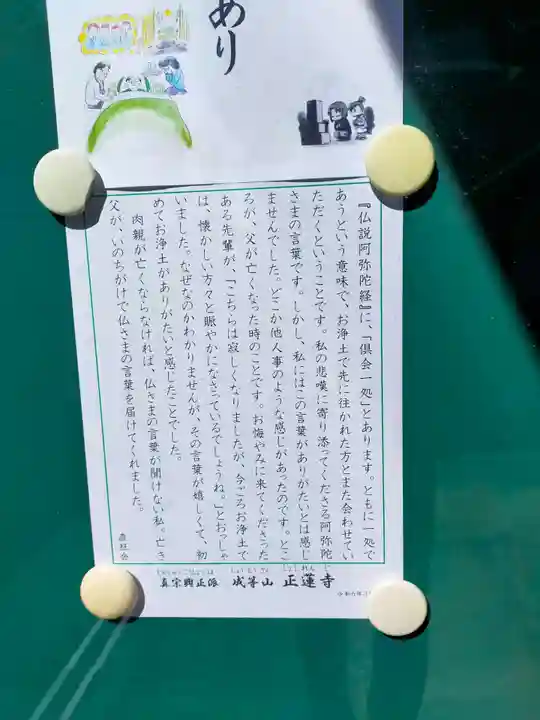 あり
『仏説阿弥陀経』に、「倶会一処」とあります。ともに一処で
あうという意味で、お浄土で先に往かれた方とまた会わせてい
ただくということです。私の悲嘆に寄り添ってくださる阿弥陀
さまの言葉です。しかし、私にはこの言葉がありがたいとは感じ
ませんでした。どこか他人事のような感じがあったのです。とこ
ろが、父が亡くなった時のことです。お悔やみに来てくださった
ある先輩が、「こちらは寂しくなりましたが、今ごろお浄土で
は、懐かしい方々と賑やかになさっているでしょうね。」とおっしゃ
いました。なぜなのかわかりませんが、その言葉が嬉しくて、初
めてお浄土がありがたいと感じたことでした。
肉親が亡くならなければ、仏さまの言葉が聞けない私。亡き
父が、いのちがけで仏さまの言葉を届けてくれました。
真宗興正派 成等山 正蓮寺